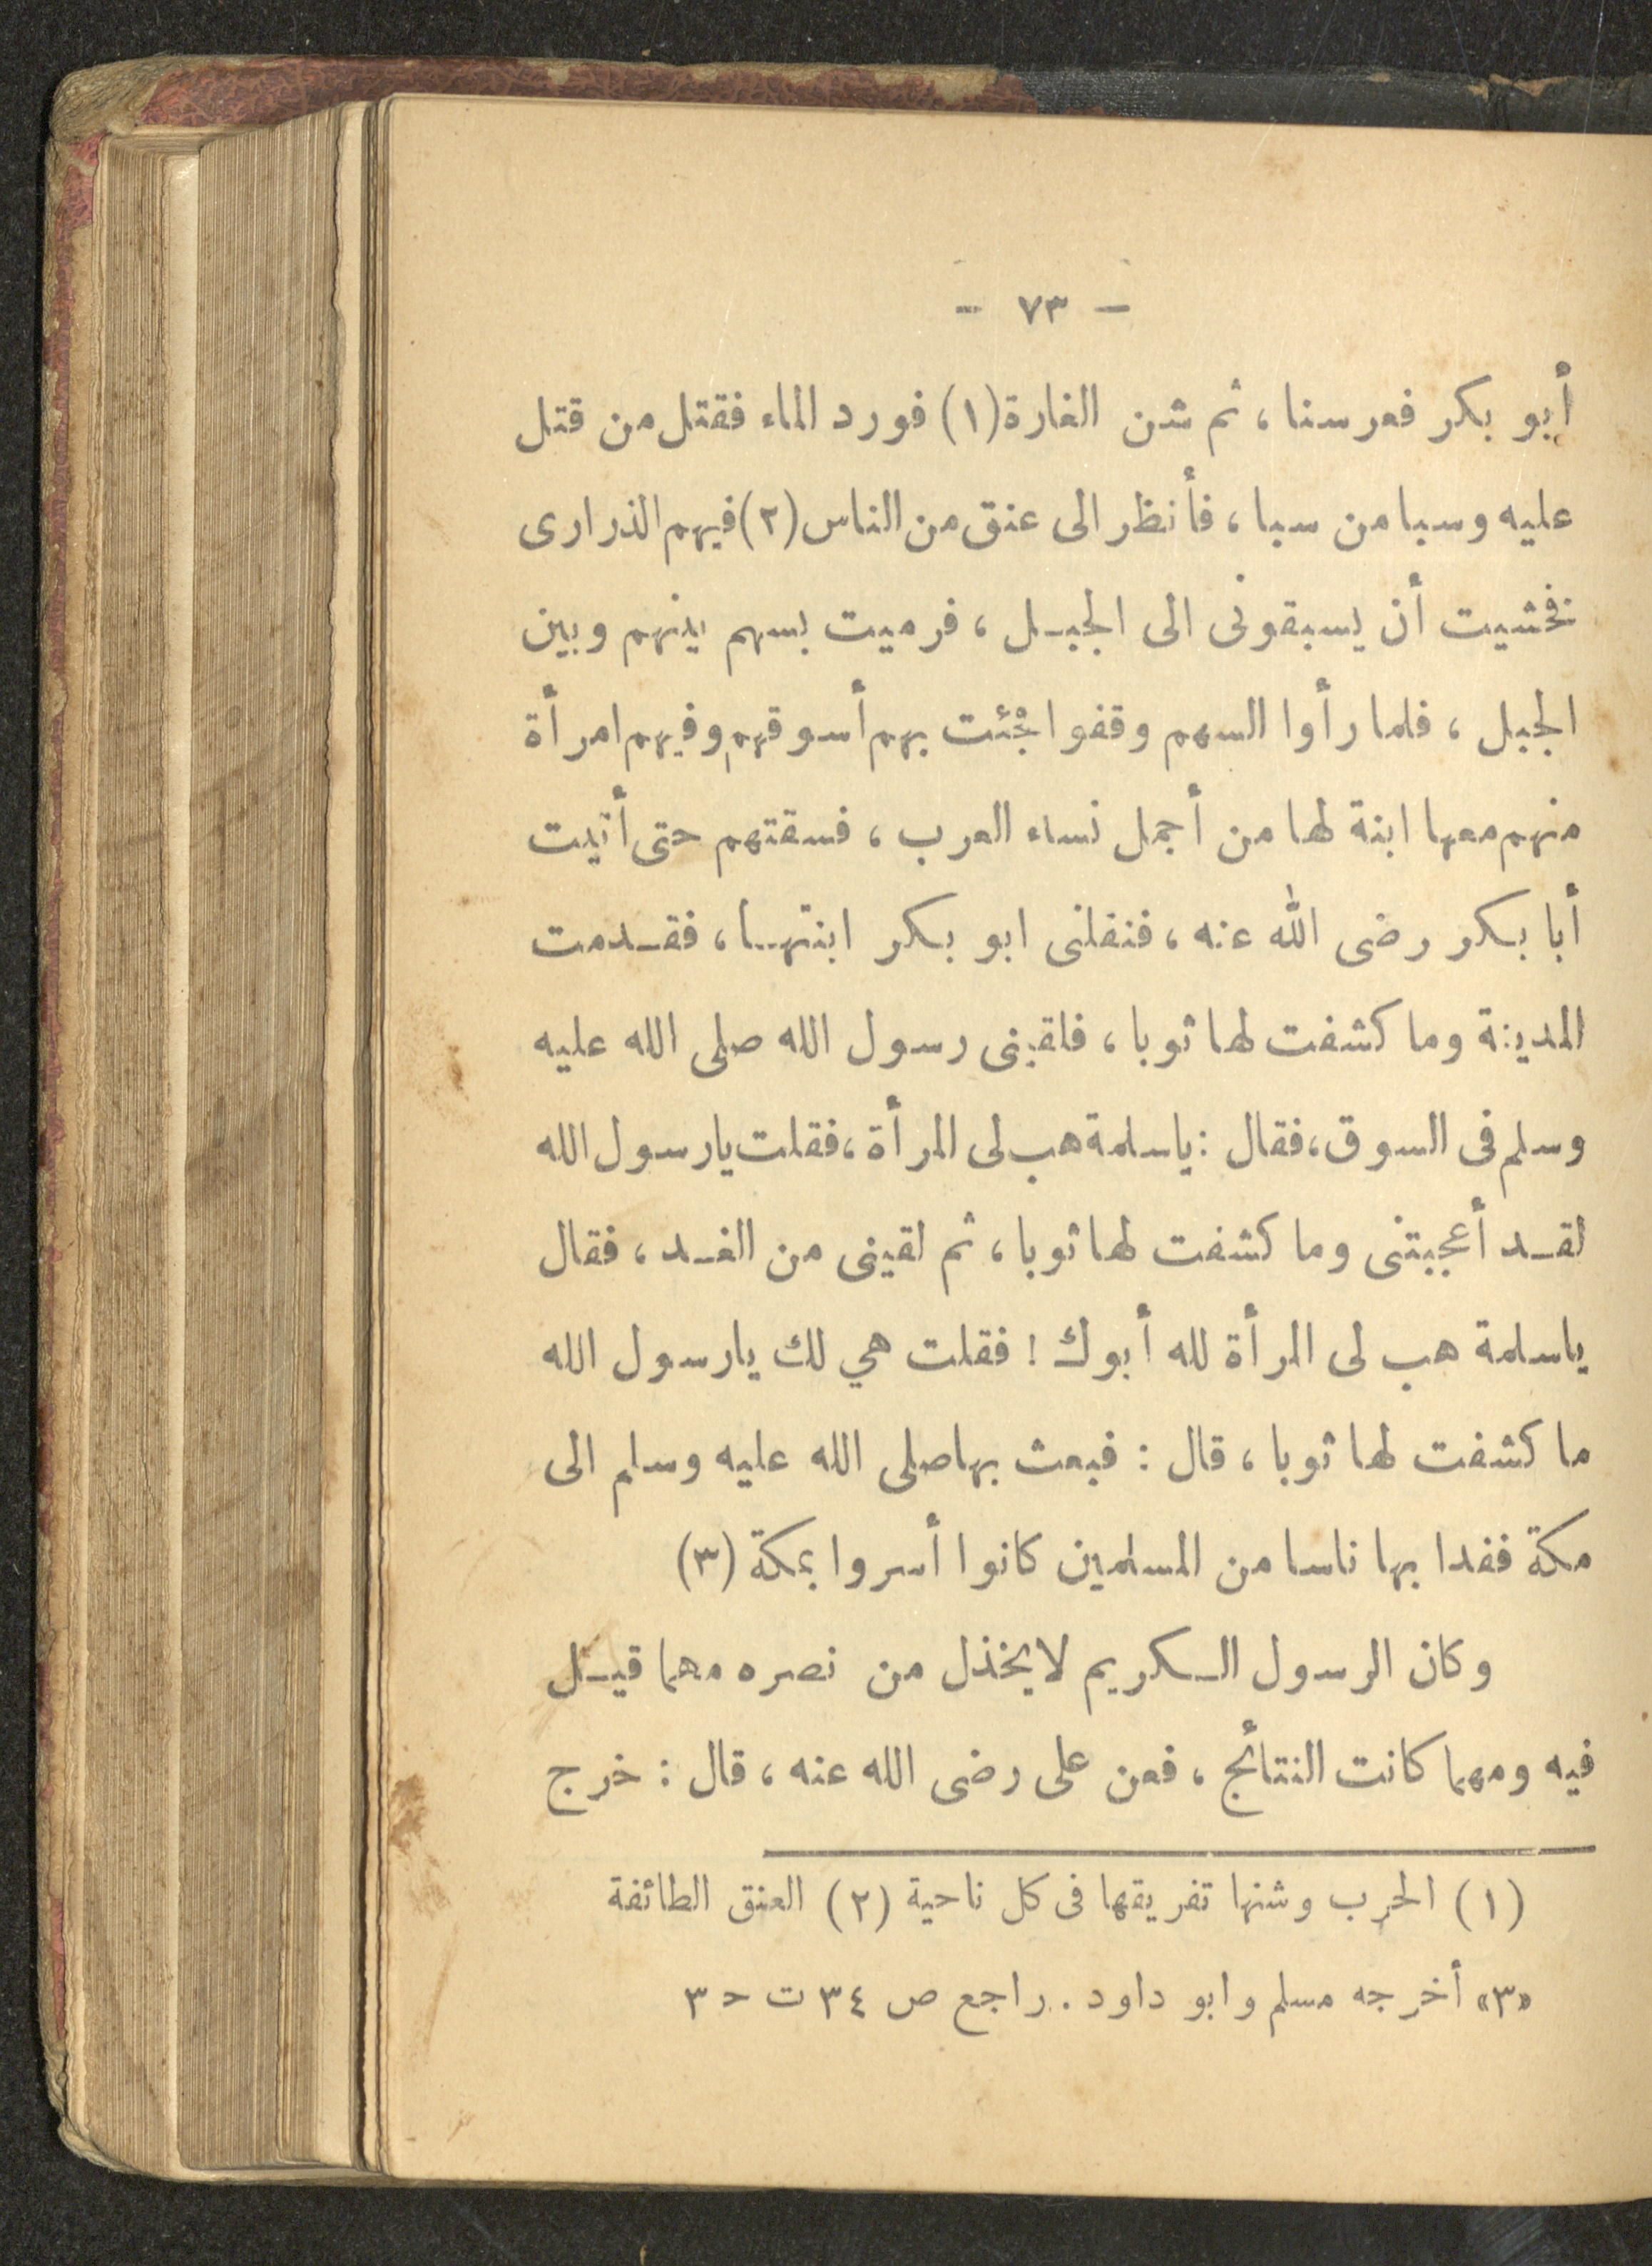 — ٧٣ —
أبو بكر فعرسنا ، ثم شن الغارة (١) فورد الماء فقتل من قتل
عليه وسبا من سبا ، فأنظر الى عنق من الناس (٢) فيهم الذرارى
فخشيت أن يسبقونى الى الجبل ، فرميت بسهم بينهم وبين
الجبل ، فلما رأوا السهم وقفوا فجئت بهم أسوقهم وفيهم امرأة
منهم معها ابنة لها من أجمل نساء العرب ، فسقتهم حتى أتيت
أبا بكر رضى الله عنه ، فنفلنى ابو بكر ابنتها ، فقدمت
المدينة وما كشفت لها ثوبا ، فلقينى رسول الله صلى الله عليه
وسلم فى السوق ، فقال : ياسلمة هب لى المرأة ، فقلت يارسول الله
لقد أعجبتنى وما كشفت لها ثوبا ، ثم لقينى من الغد ، فقال
ياسلمة هب لى المرأة لله أبوك ! فقلت هي لك يارسول الله
ما كشفت لها ثوبا ، قال : فبعث بها صلى الله عليه وسلم الى
مكة ففدا بها ناسا من المسلمين كانوا أسروا بمكة (٣)
وكان الرسول الكريم لايخذل من نصره مهما قيل
فيه ومهما كانت النتائج ، فعن على رضى الله عنه ، قال : خرج
(١) الحرب وشنها تفريقها فى كل ناحية (٢) العنق الطائفة
«٣» أخرجه مسلم وابو داود . راجع ص ٣٤ ت ح ٣